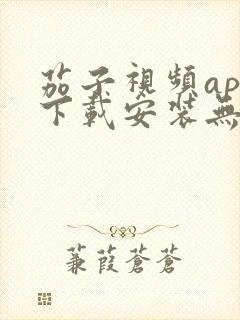 茄子視頻ap
下載安装無
蒹葭蒼蒼